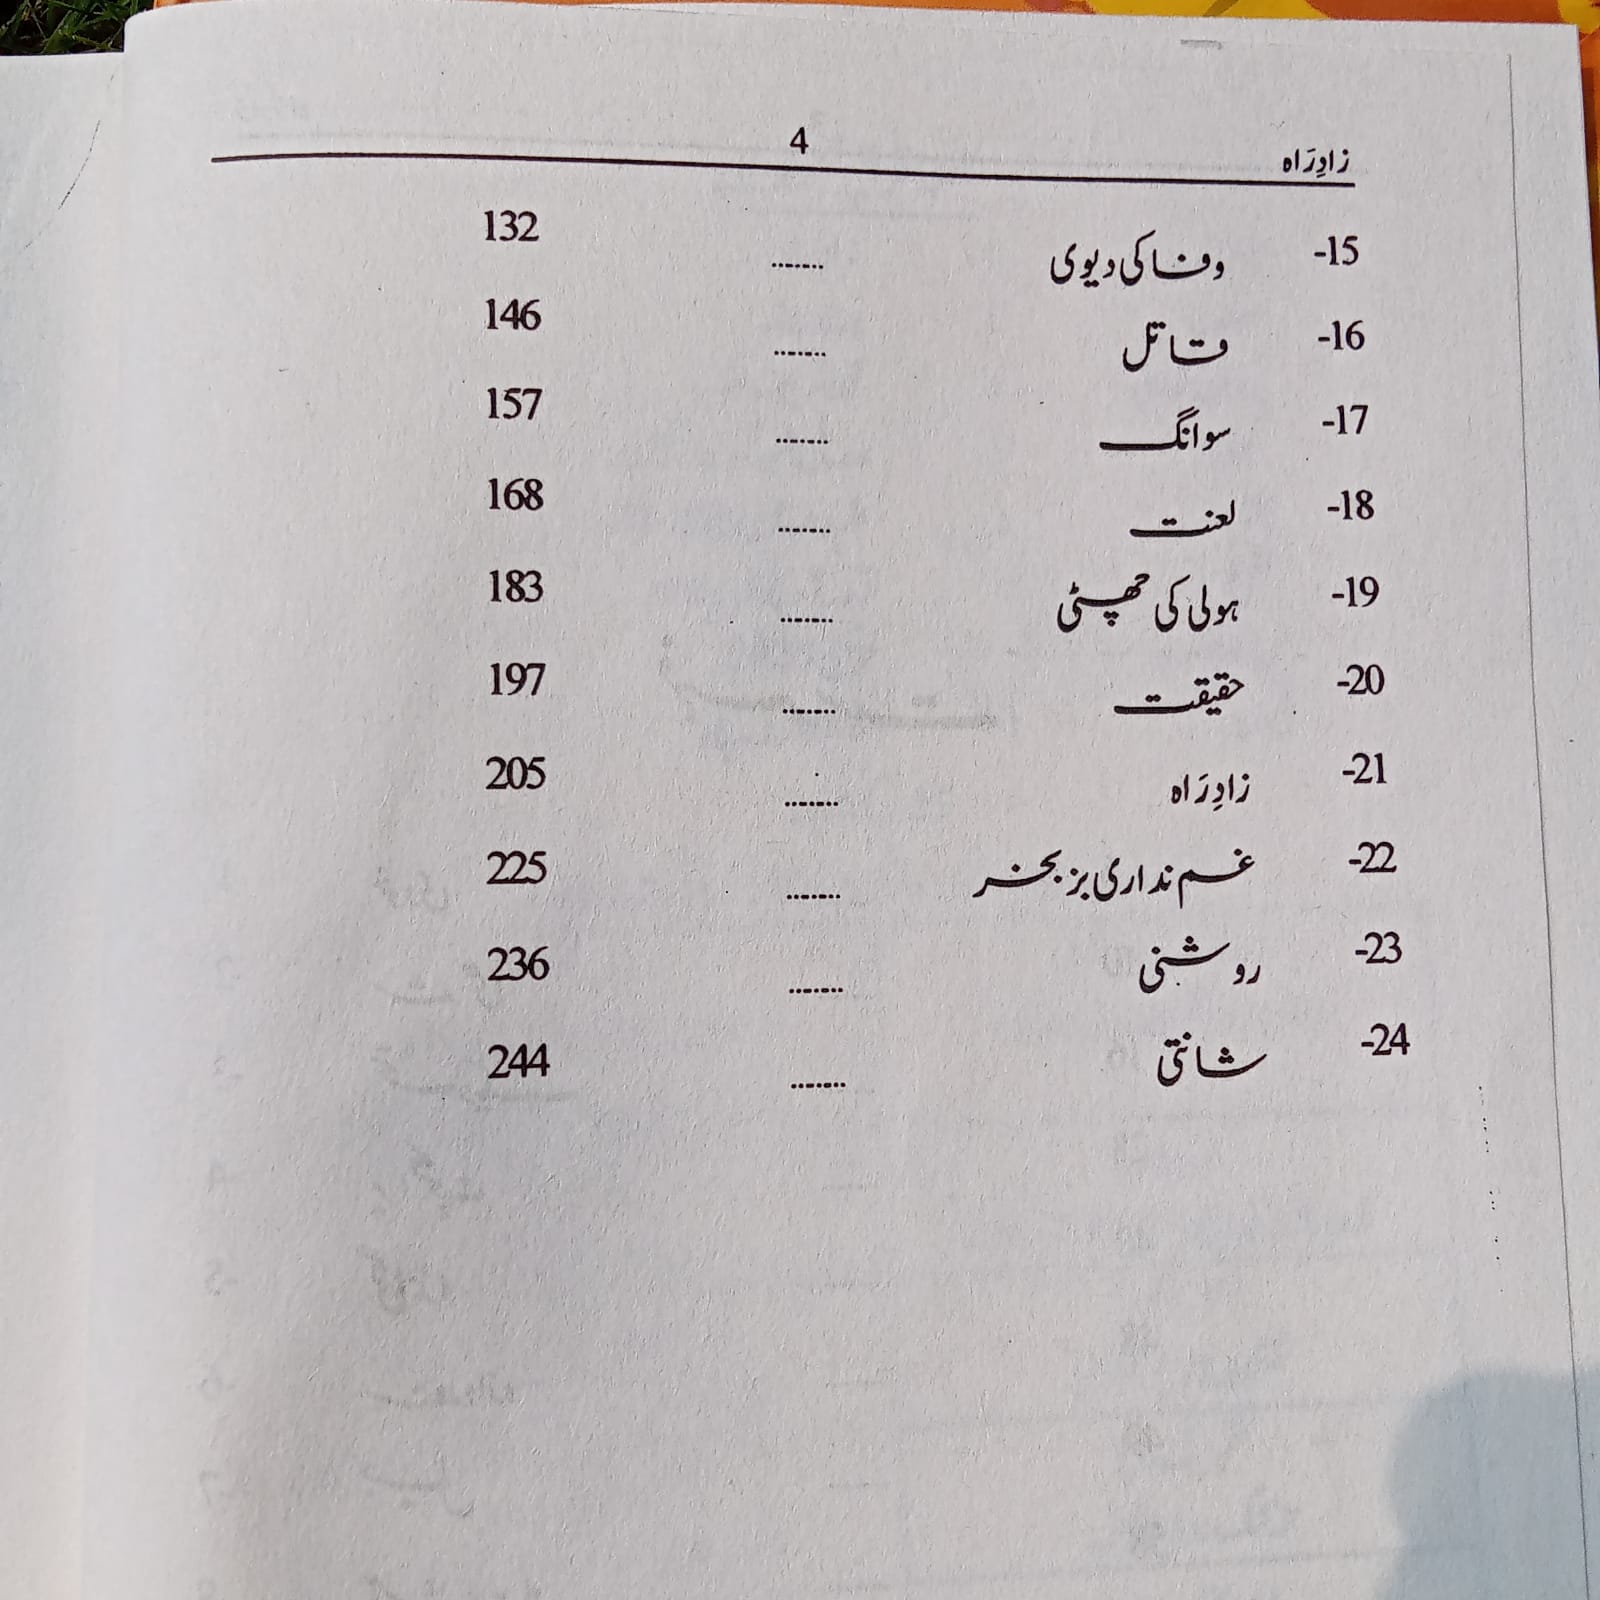 زادِرَاہ 4
15- وفا کی دیوی ....... 132
16- قاتل ....... 146
17- سوانگ ....... 157
18- لعنت ....... 168
19- ہولی کی چھٹی ....... 183
20- حقیقت ....... 197
21- زادِرَاہ ....... 205
22- غم نداری بز بخر ....... 225
23- روشنی ....... 236
24- شانتی ....... 244